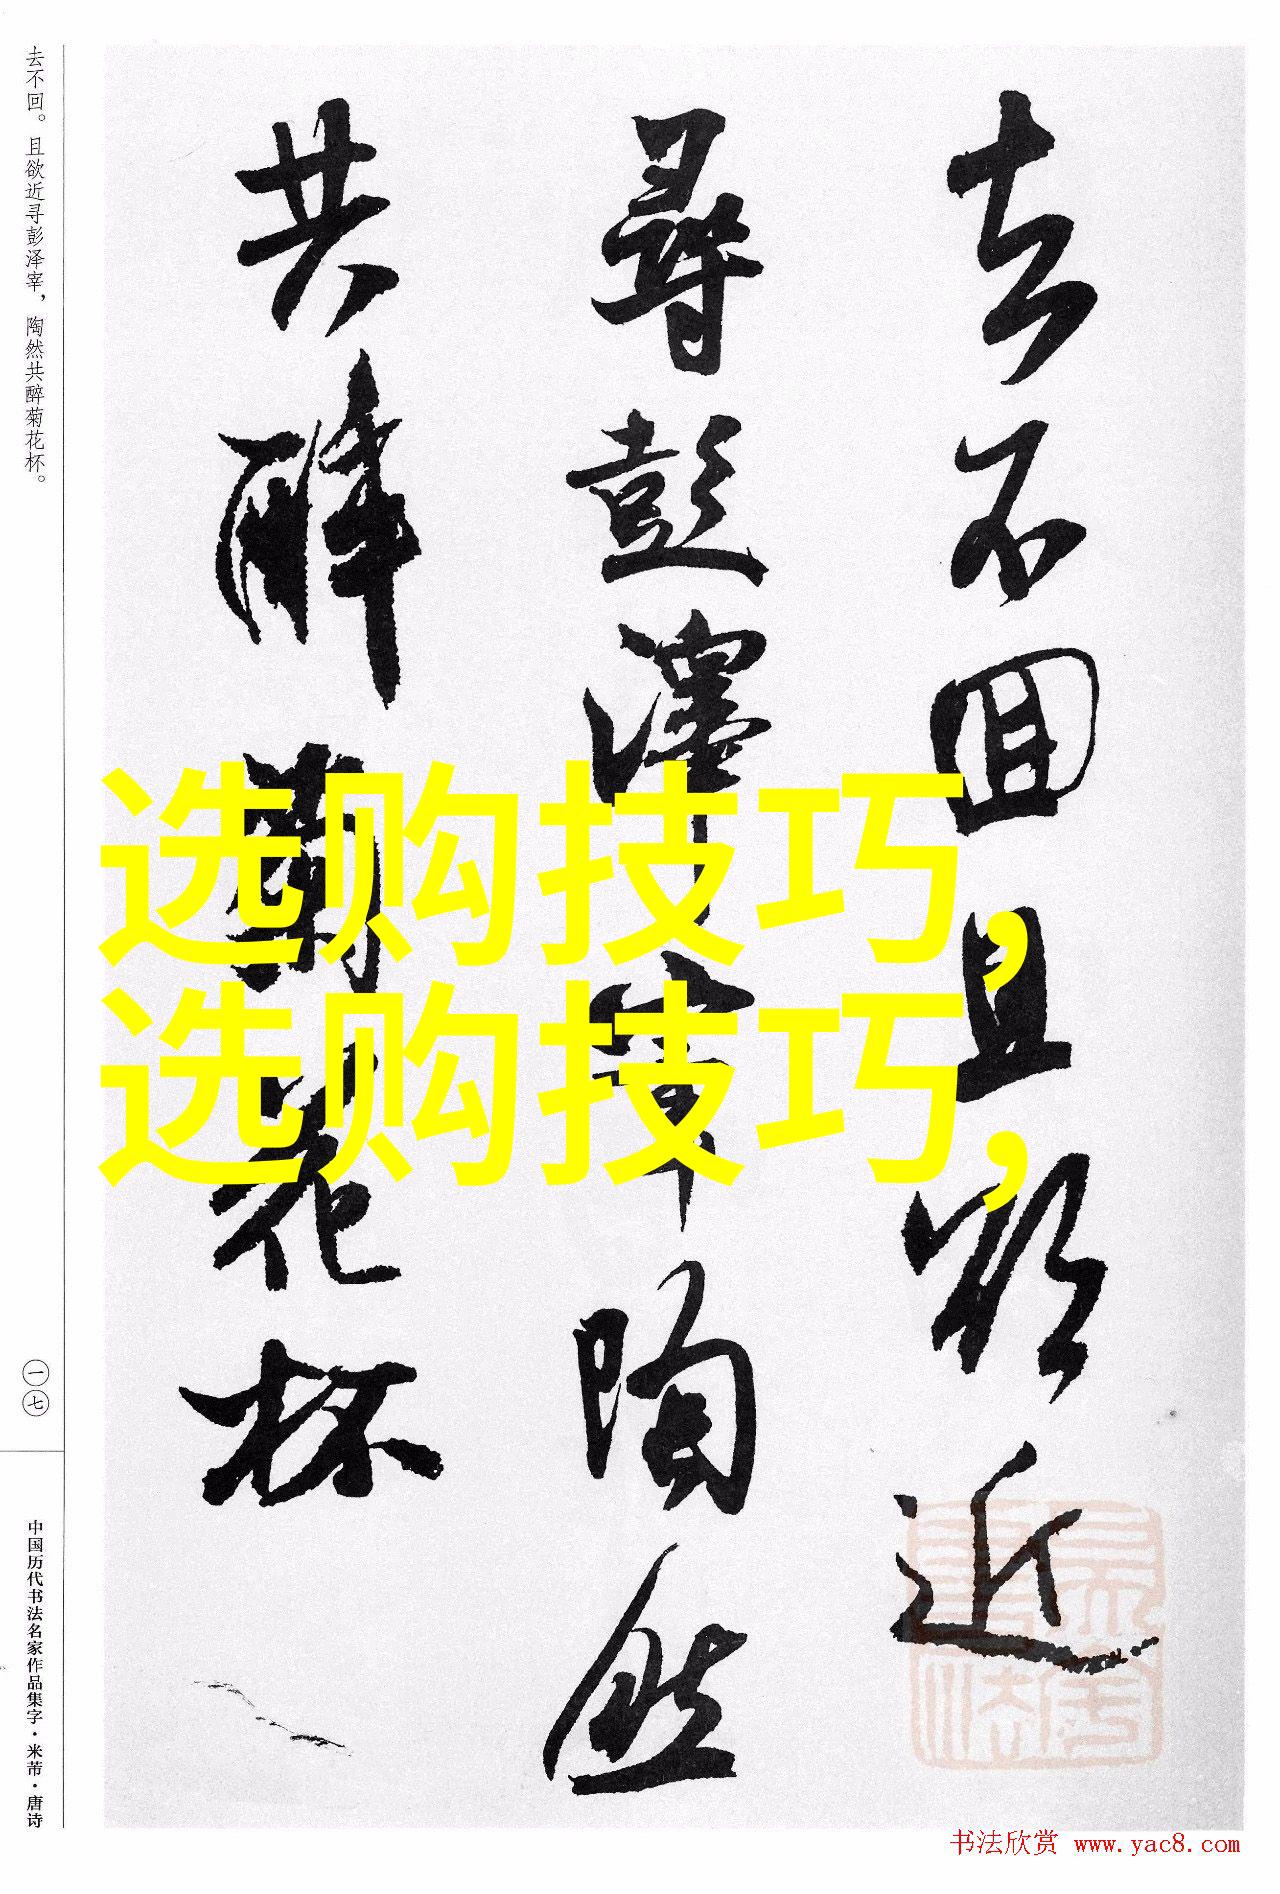 去不回。且欲近寻彭泽宰，陶然共醉菊花杯。
去不回且欲近
尋彭澤宰陶然
共醉菊花杯
选购技巧，
选购技巧，
一七
中国历代书法名家作品集字·米芾·唐诗
书法欣赏 www.yac8.com